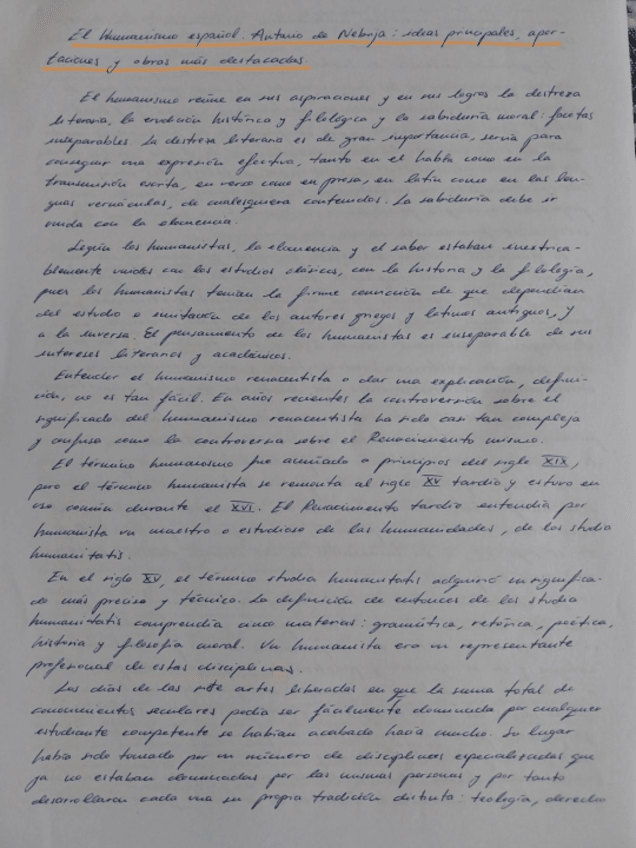 El Humanismo español. Antonio de Nebrija: ideas principales, apor-
taciones y obras más destacadas.
El humanismo reúne en sus aspiraciones y en sus logros la destreza
literaria, la erudición histórica y filológica y la sabiduría moral: facetas
inseparables. La destreza literaria es de gran importancia, servía para
conseguir una expresión efectiva, tanto en el habla como en la
transmisión escrita, en verso como en prosa, en latín como en las len-
guas vernáculas, de cualesquiera contenidos. La sabiduría debe ir
unida con la elocuencia.
Según los humanistas, la elocuencia y el saber estaban inextrica-
blemente unidos con los estudios clásicos, con la historia y la filología,
pues los humanistas tenían la firme convicción de que dependían
del estudio e imitación de los autores griegos y latinos antiguos, y
a la inversa. El pensamiento de los humanistas es inseparable de sus
intereses literarios y académicos.
Entender el humanismo renacentista o dar una explicación, defini-
ción, no es tan fácil. En años recientes la controversión sobre el
significado del humanismo renacentista ha sido casi tan compleja
y confusa como la controversia sobre el Renacimiento mismo.
El término humanismo fue acuñado a principios del siglo XIX,
pero el término humanista se remonta al siglo XV tardío y estuvo en
uso común durante el XVI. El Renacimiento tardío entendía por
humanista un maestro o estudioso de las humanidades, de los studia
humanitatis.
En el siglo XV, el término studia humanitatis adquirió un significa-
do más preciso y técnico. La definición de entonces de los studia
humanitatis comprendía cinco materias: gramática, retórica, poética,
historia y filosofía moral. Un humanista era un representante
profesional de estas disciplinas.
Los días de las siete artes liberales en que la suma total de
conocimientos seculares podía ser fácilmente dominada por cualquier
estudiante competente se habían acabado hacía mucho. Su lugar
había sido tomado por un número de disciplinas especializadas que
ya no estaban dominadas por las mismas personas y por tanto
desarrollaron cada una su propia tradición distinta: teología, derecho